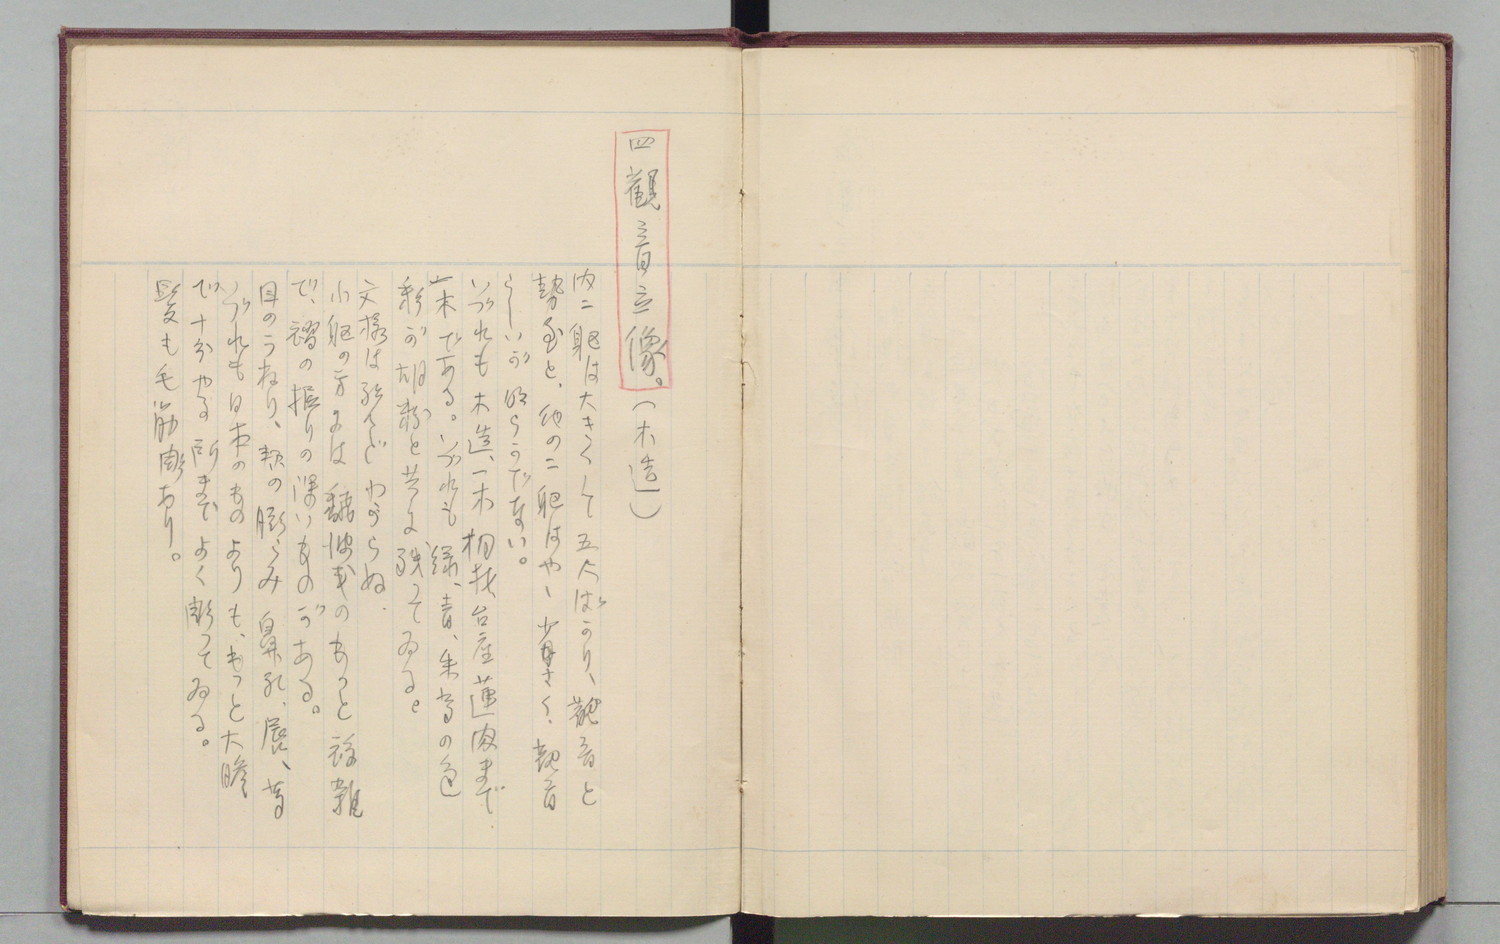 四觀音立像。(木造)
内二躯は大きくして五尺ばかり、観音と
勢至と、他の二躯はやゝ小さく、観音
らしいが明らかでない。
いづれも木造、一木 台座蓮肉まで
一木である。いづれも緑、青、朱等の色
彩が胡粉と共に残つてゐる。
文様は殆んどわからぬ.
小躯の方には 飜波式のもつと複雜
で、褶の掘りの深いものがある。
目のうねり、頬の膨らみ 鼻孔、唇、等
いづれも日本のものよりも、もつと大膽
で十分やる所までよく彫つてゐる。
髪も毛筋彫あり。